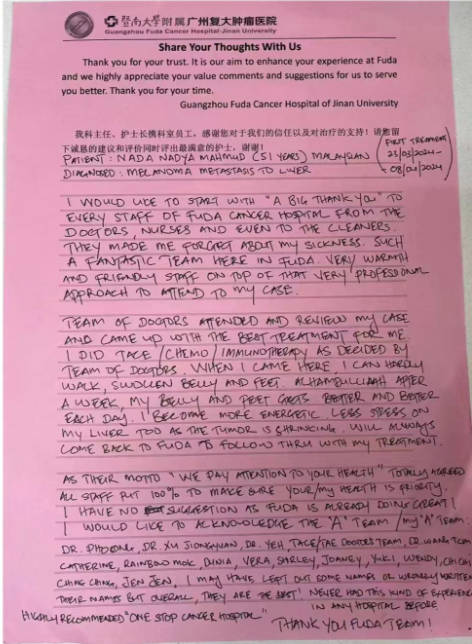 暨南大學附属广州复大肿瘤医院
Guangzhou Fuda Cancer Hospital·Jinan University
Share Your Thoughts With Us
Thank you for your trust. It is our aim to enhance your experience at Fuda
and we highly appreciate your value comments and suggestions for us to serve
you better. Thank you for your time.
Guangzhou Fuda Cancer Hospital of Jinan University
我科主任、护士长携科室员工，感谢您对于我们的信任以及对治疗的支持！请您留
下诚恳的建议和评价同时评出最满意的护士，谢谢！
PATIENT: NADA NADYA MAHMUD (51 YEARS) MALAYSIAN
DIAGNOSED: MELANOMA METASTASIS TO LIVER
(FIRST TREATMENT
25/03/2024 -
08/04/2024)
I WOULD LIKE TO START WITH "A BIG THANK YOU" TO
EVERY STAFF OF FUDA CANCER HOSPITAL FROM THE
DOCTORS, NURSES AND EVEN TO THE CLEANERS.
THEY MADE ME FORGET ABOUT MY SICKNESS. SUCH
A FANTASTIC TEAM HERE IN FUDA. VERY WARMTH
AND FRIENDLY STAFF ON TOP OF THAT VERY PROFESSIONAL
APPROACH TO ATTEND TO MY CASE.
TEAM OF DOCTORS ATTENDED AND REVIEW MY CASE
AND CAME UP WITH THE BEST TREATMENT FOR ME
I DID TACE/CHEMO/IMMUNOTHERAPY AS DECIDED BY
TEAM OF DOCTORS. WHEN I CAME HERE, I CAN HARDLY
WALK, SWOLLEN BELLY AND FEET. ALHAMBULILLAH AFTER
A WEEK, MY BELLY AND FEET GETS BETTER AND BETTER
EACH DAY. I BECOME MORE ENERGETIC. LESS STRESS ON
MY LIVER TOO AS THE TUMOR IS SHRINKING. WILL ALWAYS
COME BACK TO FUDA TO FOLLOW THRU WITH MY TREATMENT.
AS THEIR MOTTO "WE PAY ATTENTION TO YOUR HEALTH" TOTALLY AGREED
ALL STAFF PUT 100% TO MAKE SURE YOUR/MY HEALTH IS PRIORITY.
I HAVE NO SUGGESTION AS FUDA IS ALREADY DOING GREAT!
I WOULD LIKE TO ACKNOWLEDGE THE "A" TEAM /MY "A" TEAM:
DR. XU JIONGYUAN, DR. YEH, TACE/TAE DOCTORS TEAM, DR. WANG TEAM
CATHERINE, RAINBOW MOK, DUNIA, VERA, SHIRLEY, JOANEY, YUKI, WENDY, CHI CHI
CHING CHING, JEN JEN, I MAY HAVE LEFT OUT SOME NAMES OR WRONGLY WRITTEN
THEIR NAMES BUT OVERALL, THEY ARE THE BEST! NEVER HAD THIS KIND OF EXPERIENCE
IN ANY HOSPITAL BEFORE
HIGHLY RECOMMENDED "ONE STOP CANCER HOSPITAL"
THANK YOU FUDA TEAM!